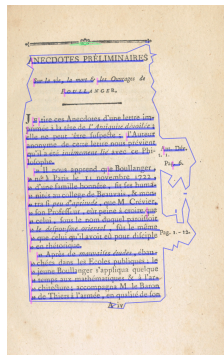 ANECDOTES PRÉLIMINAIRES
Sur la vie, la mort & les Ouvrages de
BOULLANGER.
Je tire ces Anecdotes d'une lettre im-
primée à la tête de l'Antiquité dévoilée:
elle ne peut être suspecte; l'Auteur
anonyme de cette lettre nous prévient
qu'il a été intimement lié avec ce Phi-
losophe.
Il nous apprend que Boullanger,
né à Paris le 11 novembre 1722,
d'une famille honnête, fit ses huma-
nités au collège de Beauvais, & mon-
tra si peu d'aptitude, que M. Crévier,
son Professeur,
celui, sous le nom duquel paroissoit
le despotisme oriental, fût le même
que celui qu'il avoit eû pour disciple
en rhétorique.
Après de mauvaises études, ébau-
chées dans les Ecoles publiques, le
jeune Boullanger s'appliqua quelque
temps aux mathématiques & à l'ar-
chitecture; accompagna M. le Baron
de Thiers à l'armée, en qualité de son
Pag. 1.-12.